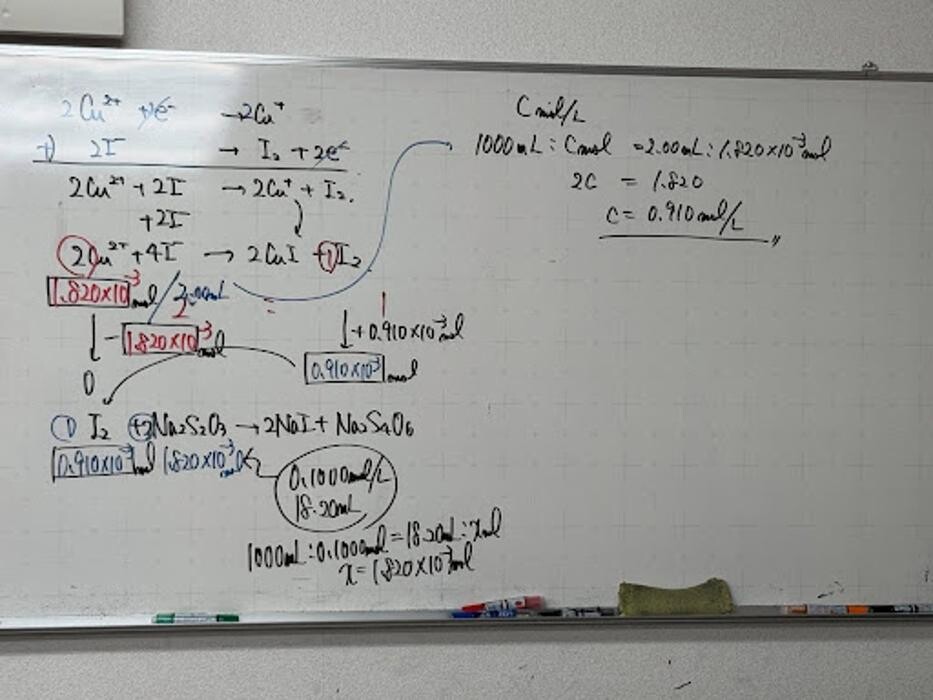 2Cu²⁺ +2e⁻ → 2Cu⁺
+) 2I⁻ → I₂ + 2e⁻
2Cu²⁺ + 2I⁻ → 2Cu⁺ + I₂.
+2I⁻
2Cu²⁺ + 4I⁻ → 2CuI + 1 I₂
1.820×10⁻³ mol / 2.00mL
↓ - 1.820×10⁻³ mol
↓ + 0.910×10⁻³ mol
0
0.910×10⁻³ mol
1 I₂ + 2Na₂S₂O₃ → 2NaI + Na₂S₄O₆
0.910×10⁻³ mol 1.820×10⁻³ mol
0.1000mol/L
18.20mL
1000mL : 0.1000mol = 18.20mL : x mol
x = 1.820×10⁻³ mol
C mol/L
1000mL : C mol = 2.00mL : 1.820×10⁻³ mol
2C = 1.820
C = 0.910 mol/L